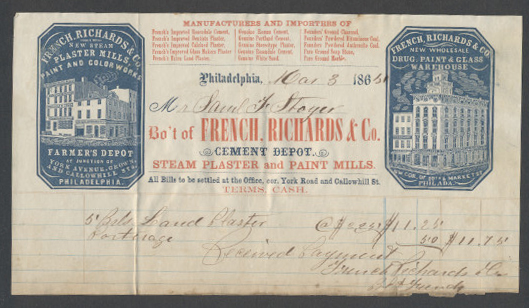 MANUFACTURERS AND IMPORTERS OF
French's Improved Rosendale Cement,
French's Improved Dentists Plaster,
French's Improved Calcined Plaster,
French's Water Land Plaster.
Genuine Roman Cement,
Genuine Portland Cement,
Genuine Stereotype Plaster,
Genuine White Sand.
Calcined Ground Charcoal,
Powdered Anthracite Coal,
Pure Ground Marble.
FRENCH, RICHARDS & CO.
NEW STEAM
PLASTER MILLS,
PAINT AND COLOR WORKS
FARMER'S DEPOT
AT JUNCTION OF
YORK AVENUE, CROWN
AND CALLOWHILL STS.
PHILADELPHIA.
FRENCH, RICHARDS & CO.
NEW WHOLESALE
DRUG, PAINT & GLASS
WAREHOUSE
N.W. COR. OF 10TH & MARKET ST
PHILADA.
Philadelphia, Mar 3 186
M r Saml F. Stoyer
Bo't of FRENCH, RICHARDS & Co.
CEMENT DEPOT.
STEAM PLASTER and PAINT MILLS.
All Bills to be settled at the Office, cor. York Road and Callowhill St.
TERMS CASH.
5 Bbls Land Plaster @ $2.25 $11.25
Porterage 50 $11.75
Received Payment
French Richards & Co
French